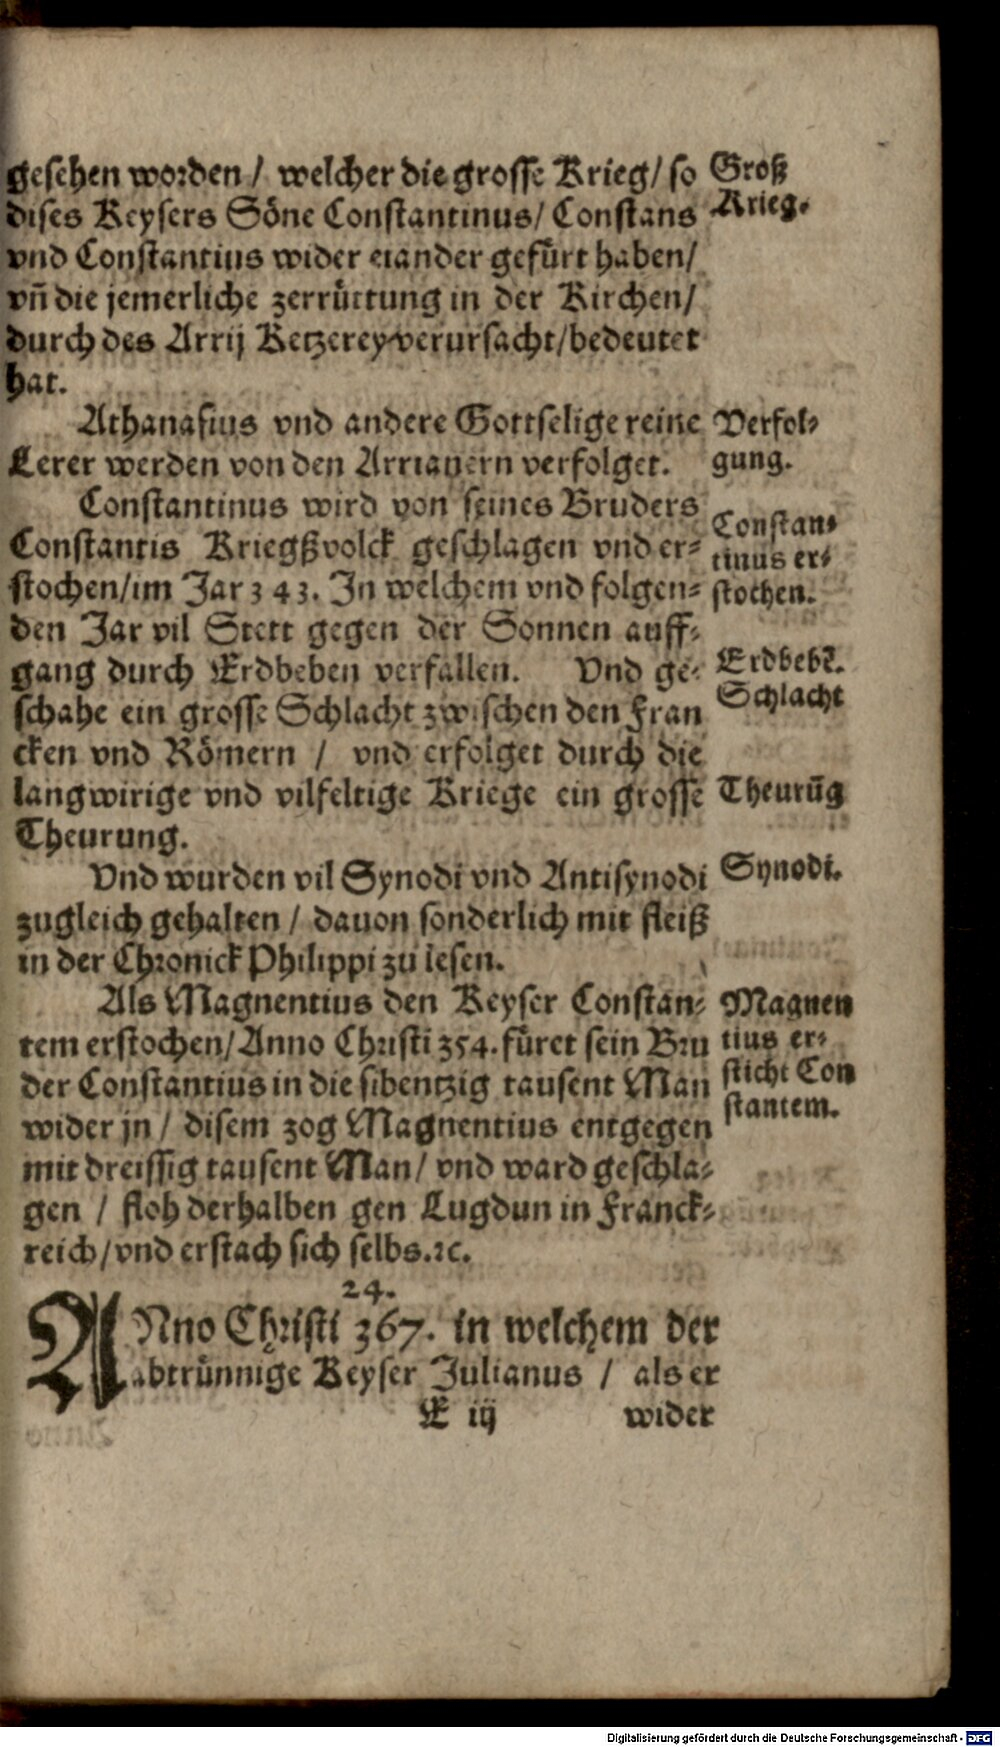 gesehen worden / welcher die grosse Krieg / so
dises Keysers Söne Constantinus / Constans
vnd Constantius wider einander gefürt haben /
vñ die jemerliche zerrüttung in der Kirchen /
durch des Arrij Ketzerey verursacht / bedeutet
hat.
Groß
Krieg.
Athanasius vnd andere Gottselige reine
Lerer werden von den Arrianern verfolget.
Verfol⸗
gung.
Constantinus wird von seines Bruders
Constantis Kriegßvolck geschlagen vnd er⸗
stochen / im Jar 343. In welchem vnd folgen⸗
den Jar vil Stett gegen der Sonnen auff⸗
gang durch Erdbeben verfallen. Vnd ge⸗
schahe ein grosse Schlacht zwischen den Fran
cken vnd Römern / vnd erfolget durch die
langwirige vnd vilfeltige Kriege ein grosse
Theurung.
Constan⸗
tinus er⸗
stochen.
Erdbebẽ.
Schlacht
Theurũg
Vnd wurden vil Synodi vnd Antisynodi
zugleich gehalten / dauon sonderlich mit fleiß
in der Chronick Philippi zu lesen.
Synodi.
Als Magnentius den Keyser Constan⸗
tem erstochen / Anno Christi 354. füret sein Bru
der Constantius in die sibentzig tausent Man
wider jn / disem zog Magnentius entgegen
mit dreissig tausent Man / vnd ward geschla⸗
gen / floh derhalben gen Lugdun in Franck⸗
reich / vnd erstach sich selbs. ꝛc.
Magnen
tius er⸗
sticht Con
stantem.
24.
ANno Christi 367. in welchem der
abtrünnige Keyser Julianus / als er
E iij wider
Digitalisierung gefördert durch die Deutsche Forschungsgemeinschaft - DFG